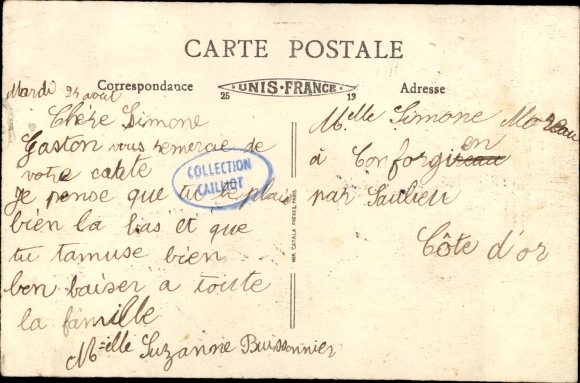 CARTE POSTALE
Correspondance
UNIS-FRANCE
25
13
Adresse
Mardi 24 août
Chère Simone
Gaston vous remercie de
votre carte
Je pense que tu te plais
bien la bas et que
tu tamuse bien
bon baiser a toute
la famille
M.elle Suzanne Buissonnier
COLLECTION
CAILLIOT
IMP. CATALA FRÈRES, PARIS
M.elle Simone Moreau
à Conforgien
par Saulieu
Côte d'or